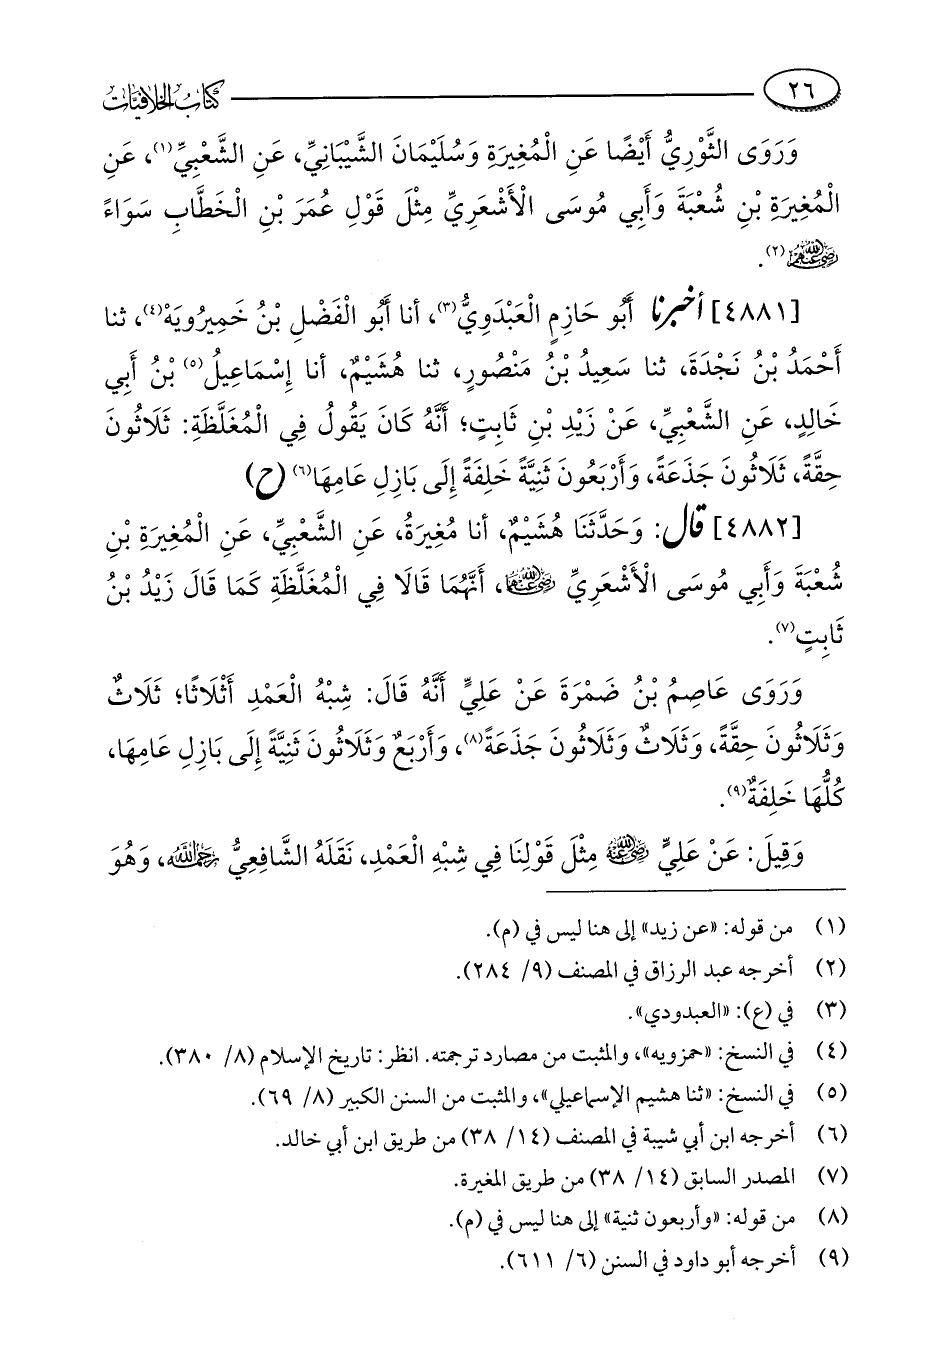 ٢٦ كتاب الخلافيات
وَرَوَى الثَّوْرِيُّ أَيْضًا عَنِ الْمُغِيرَةِ وَسُلَيْمَانَ الشَّيْبَانِيِّ، عَنِ الشَّعْبِيِّ(١)، عَنِ
الْمُغِيرَةِ بْنِ شُعْبَةَ وَأَبِي مُوسَى الْأَشْعَرِيِّ مِثْلَ قَوْلِ عُمَرَ بْنِ الْخَطَّابِ سَوَاءً
رضي الله عنهم(٢).
[٤٨٨١] أخبرنا أَبُو حَازِمٍ الْعَبْدَوِيُّ(٣)، أنا أَبُو الْفَضْلِ بْنُ خَمِيرُويَهْ(٤)، ثنا
أَحْمَدُ بْنُ نَجْدَةَ، ثنا سَعِيدُ بْنُ مَنْصُورٍ، ثنا هُشَيْمٌ، أنا إِسْمَاعِيلُ(٥) بْنُ أَبِي
خَالِدٍ، عَنِ الشَّعْبِيِّ، عَنْ زَيْدِ بْنِ ثَابِتٍ؛ أَنَّهُ كَانَ يَقُولُ فِي الْمُغَلَّظَةِ: ثَلَاثُونَ
حِقَّةً، ثَلَاثُونَ جَذَعَةً، وَأَرْبَعُونَ ثَنِيَّةً خَلِفَةً إِلَى بَازِلِ عَامِهَا(٦) (ح)
[٤٨٨٢] قال: وَحَدَّثَنَا هُشَيْمٌ، أنا مُغِيرَةُ، عَنِ الشَّعْبِيِّ، عَنِ الْمُغِيرَةِ بْنِ
شُعْبَةَ وَأَبِي مُوسَى الْأَشْعَرِيِّ رضي الله عنهما، أَنَّهُمَا قَالَا فِي الْمُغَلَّظَةِ كَمَا قَالَ زَيْدُ بْنُ
ثَابِتٍ(٧).
وَرَوَى عَاصِمُ بْنُ ضَمْرَةَ عَنْ عَلِيٍّ أَنَّهُ قَالَ: شِبْهُ الْعَمْدِ أَثْلَاثًا؛ ثَلَاثٌ
وَثَلَاثُونَ حِقَّةً، وَثَلَاثٌ وَثَلَاثُونَ جَذَعَةً(٨)، وَأَرْبَعٌ وَثَلَاثُونَ ثَنِيَّةً إِلَى بَازِلِ عَامِهَا،
كُلُّهَا خَلِفَةٌ(٩).
وَقِيلَ: عَنْ عَلِيٍّ رضي الله عنه مِثْلَ قَوْلِنَا فِي شِبْهِ الْعَمْدِ، نَقَلَهُ الشَّافِعِيُّ رحمه الله، وَهُوَ
(١) من قوله: «عن زيد» إلى هنا ليس في (م).
(٢) أخرجه عبد الرزاق في المصنف (٩/ ٢٨٤).
(٣) في (ع): «العبدودي».
(٤) في النسخ: «حمزويه»، والمثبت من مصادر ترجمته. انظر: تاريخ الإسلام (٨/ ٣٨٠).
(٥) في النسخ: «ثنا هشيم الإسماعيلي»، والمثبت من السنن الكبير (٨/ ٦٩).
(٦) أخرجه ابن أبي شيبة في المصنف (١٤/ ٣٨) من طريق ابن أبي خالد.
(٧) المصدر السابق (١٤/ ٣٨) من طريق المغيرة.
(٨) من قوله: «وأربعون ثنية» إلى هنا ليس في (م).
(٩) أخرجه أبو داود في السنن (٦/ ٦١١).